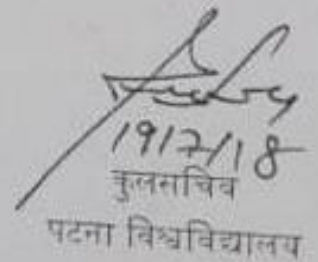 19/7/18
कुलसचिव
पटना विश्वविद्यालय